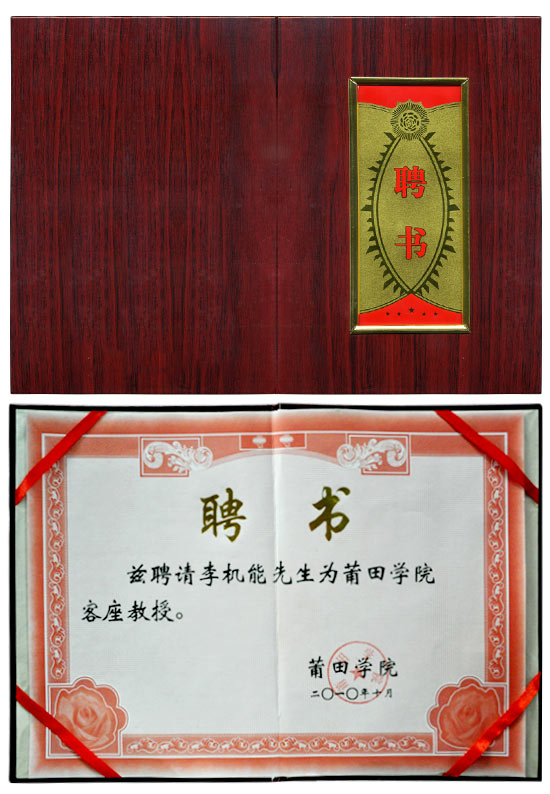 聘
书
聘 书
兹聘请李机能先生为莆田学院
客座教授。
莆田学院
二〇一〇年十月